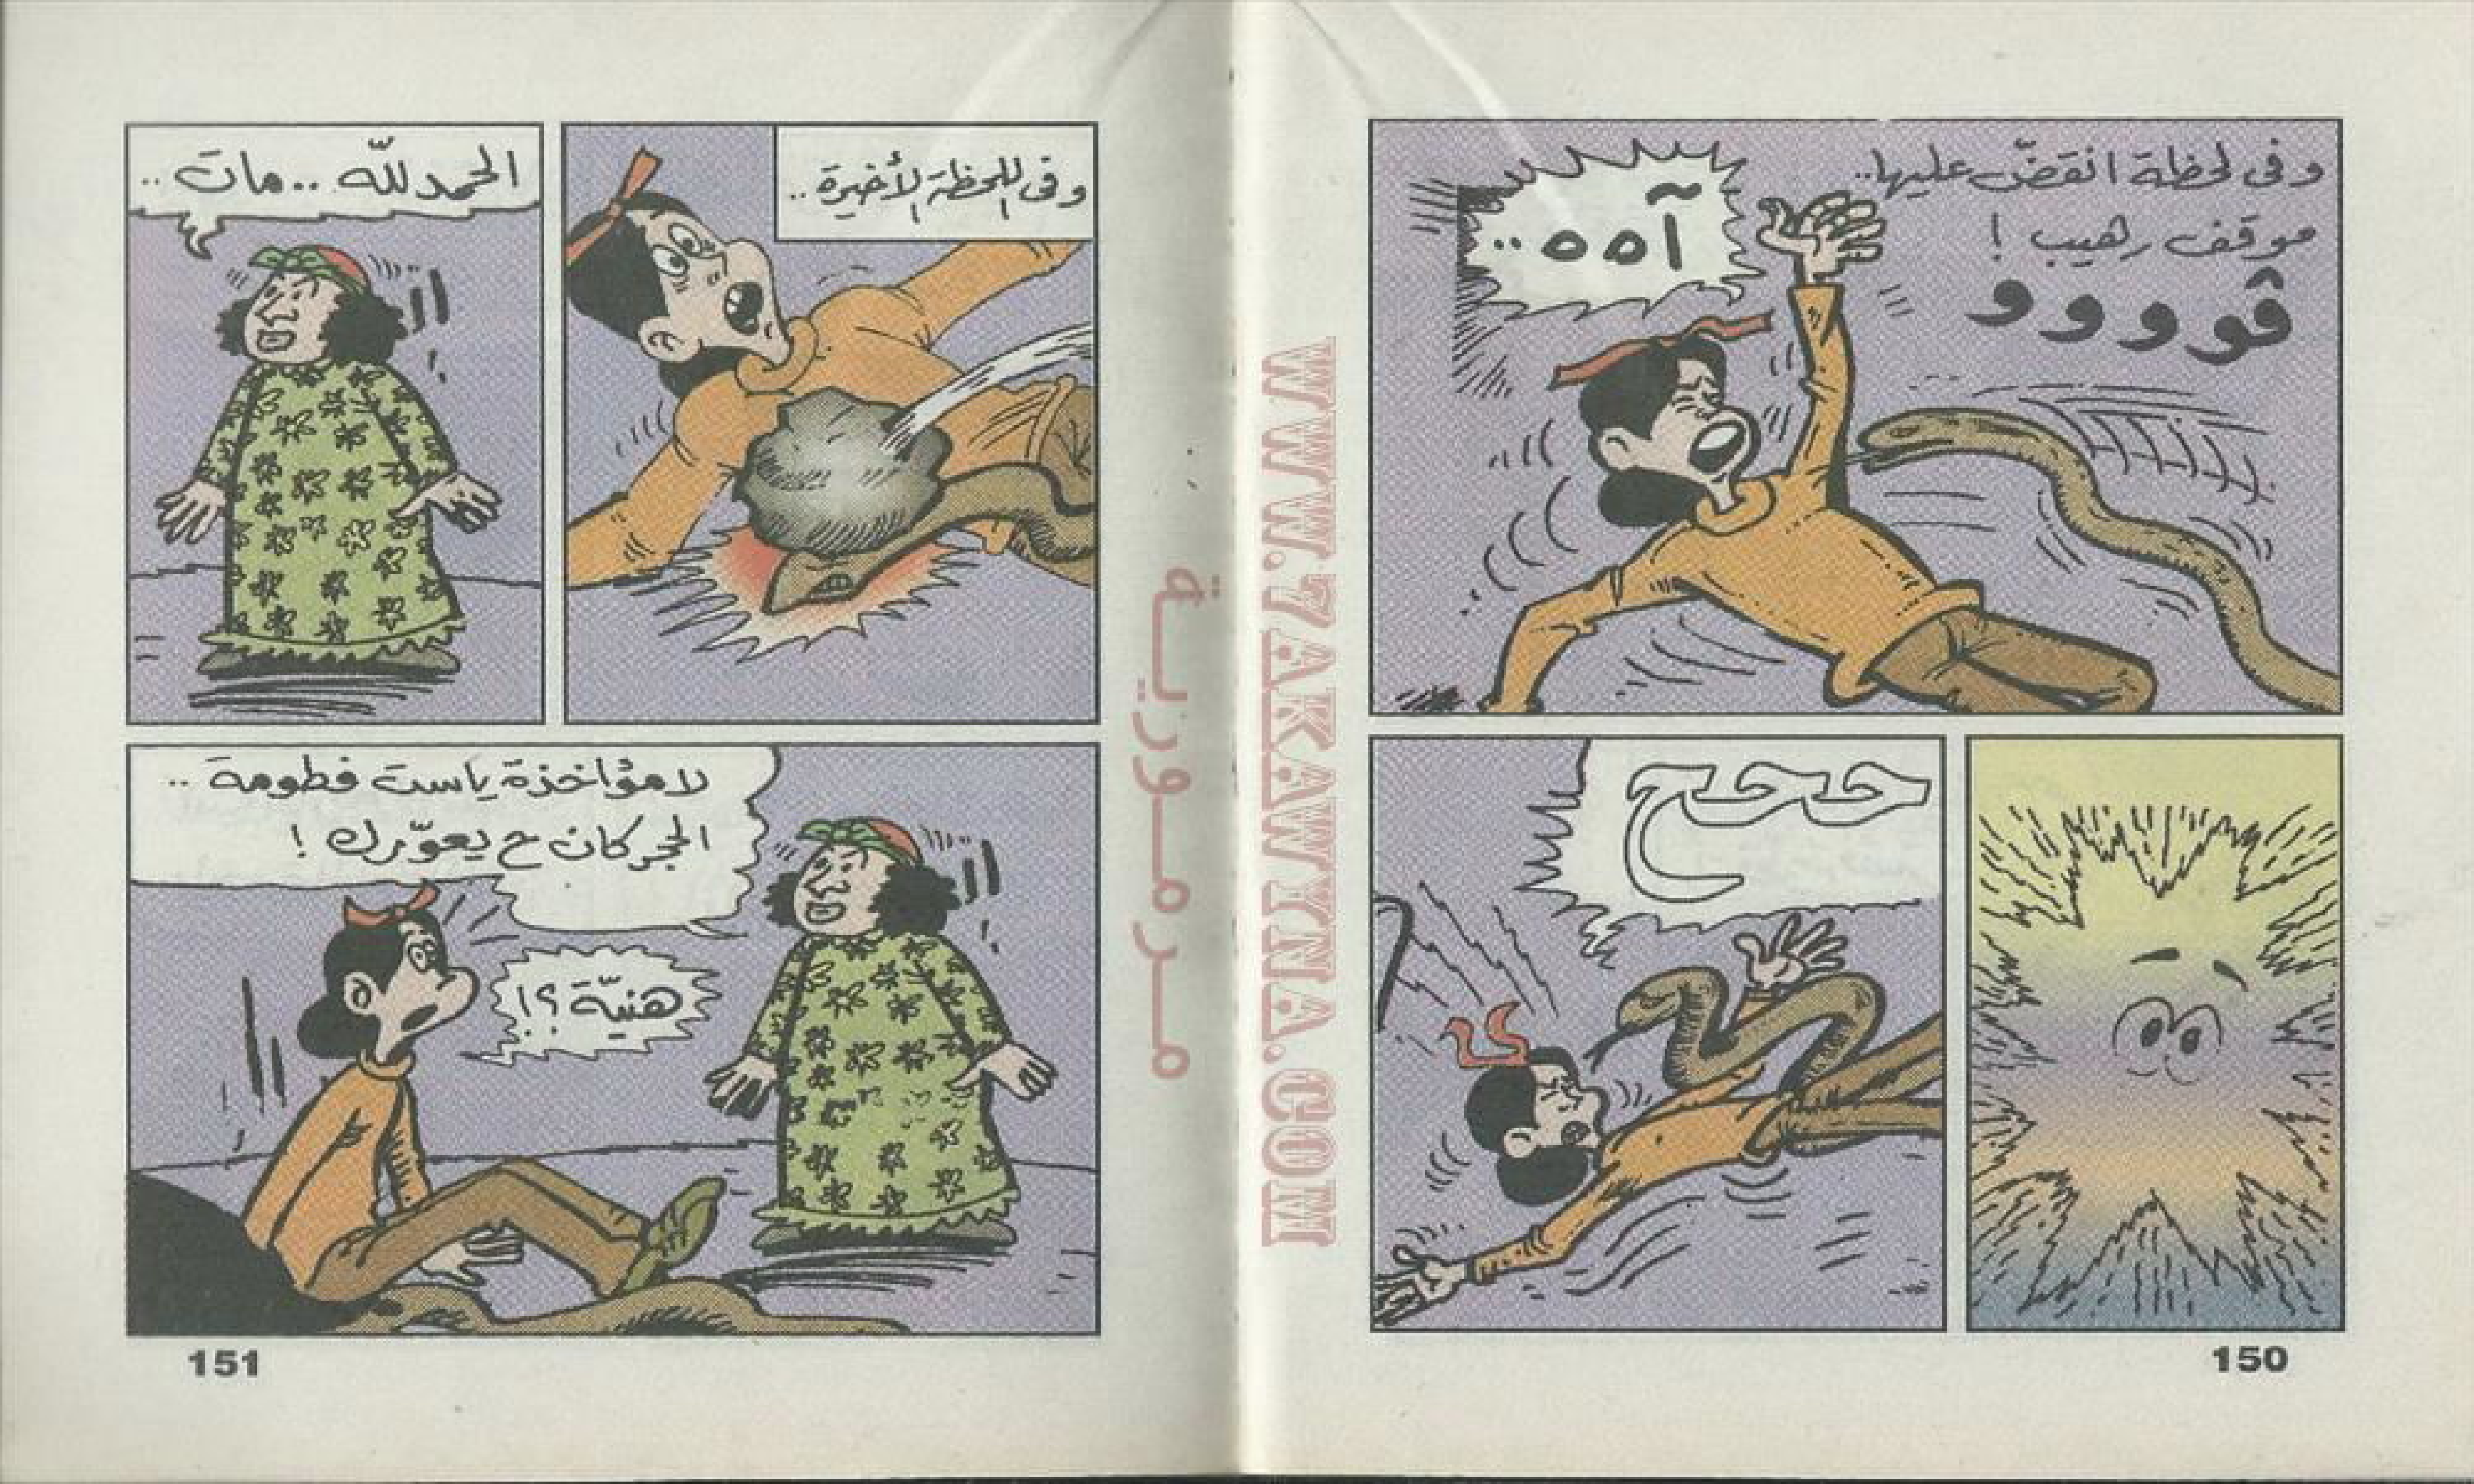 وفى لحظة انقضّ عليها..
موقف رهيب !
ڤوووو
آهه..
ححح
150
وفى اللحظة الأخيرة ..
الحمد للّه .. مات ..
لا مؤاخذة ياست فطومة ..
الحجر كان ح يعوّرك !
هنيّة ؟!
151
WWW.7AKAWYNA.COM
مرمورية